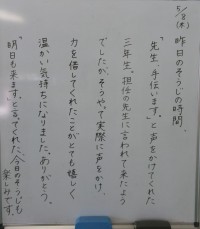 5/8(木)
昨日のそうじの時間、
「先生、手伝います。」と声をかけてくれた
三年生。担任の先生に言われて来たよう
でしたが、そうやって実際に声をかけ、
力を借してくれたことがとても嬉しく
温かい気持ちになりました。ありがとう。
「明日も来ます。」と言ってくれた、今日のそうじも
楽しみです。